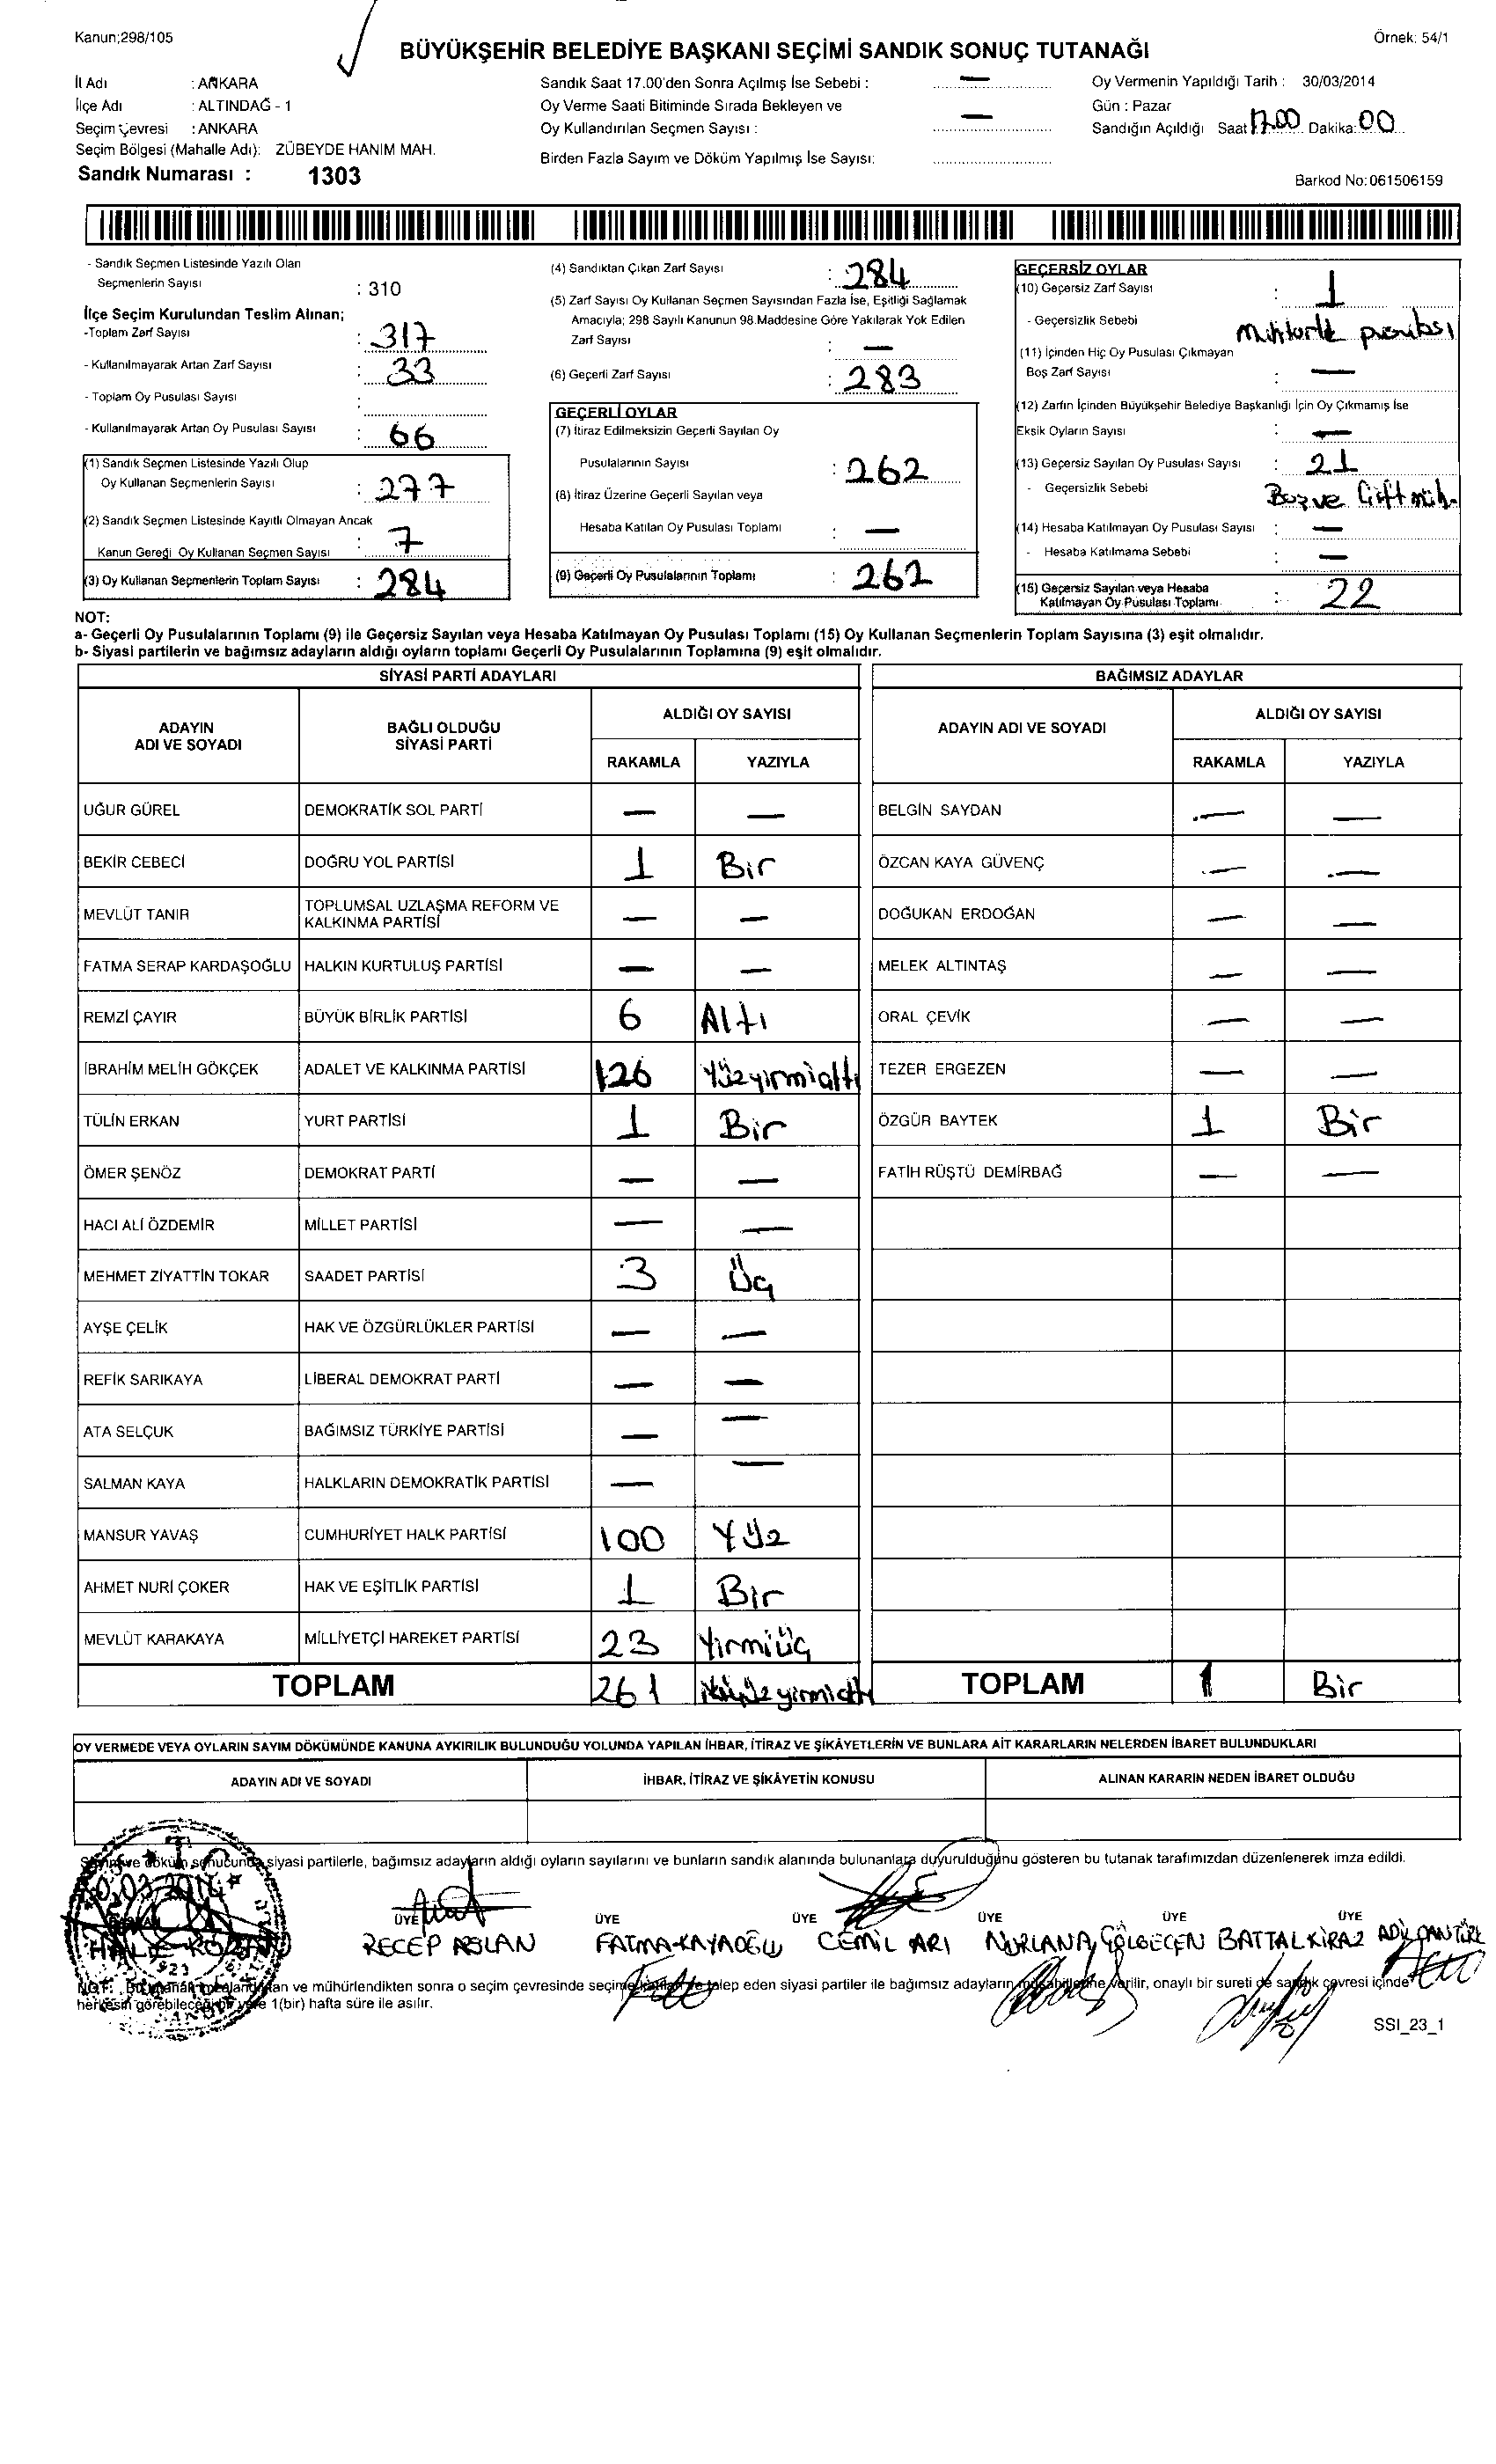 Kanun;298/105
Örnek: 54/1
BÜYÜKŞEHİR BELEDİYE BAŞKANI SEÇİMİ SANDIK SONUÇ TUTANAĞI
İl Adı : ANKARA
İlçe Adı : ALTINDAĞ - 1
Seçim Çevresi : ANKARA
Seçim Bölgesi (Mahalle Adı): ZÜBEYDE HANIM MAH.
Sandık Numarası : 1303
Sandık Saat 17.00'den Sonra Açılmış İse Sebebi : —
Oy Verme Saati Bitiminde Sırada Bekleyen ve
Oy Kullandırılan Seçmen Sayısı : —
Birden Fazla Sayım ve Döküm Yapılmış İse Sayısı:
Oy Vermenin Yapıldığı Tarih : 30/03/2014
Gün : Pazar
Sandığın Açıldığı Saat 17.00 Dakika: 00
Barkod No:061506159
- Sandık Seçmen Listesinde Yazılı Olan
Seçmenlerin Sayısı : 310
İlçe Seçim Kurulundan Teslim Alınan;
-Toplam Zarf Sayısı : 317
- Kullanılmayarak Artan Zarf Sayısı : 33
- Toplam Oy Pusulası Sayısı :
- Kullanılmayarak Artan Oy Pusulası Sayısı : 66
(1) Sandık Seçmen Listesinde Yazılı Olup
Oy Kullanan Seçmenlerin Sayısı : 277
(2) Sandık Seçmen Listesinde Kayıtlı Olmayan Ancak
Kanun Gereği Oy Kullanan Seçmen Sayısı : 7
(3) Oy Kullanan Seçmenlerin Toplam Sayısı : 284
(4) Sandıktan Çıkan Zarf Sayısı : 284
(5) Zarf Sayısı Oy Kullanan Seçmen Sayısından Fazla İse, Eşitliği Sağlamak
Amacıyla; 298 Sayılı Kanunun 98.Maddesine Göre Yakılarak Yok Edilen
Zarf Sayısı : —
(6) Geçerli Zarf Sayısı : 283
GEÇERLİ OYLAR
(7) İtiraz Edilmeksizin Geçerli Sayılan Oy
Pusulalarının Sayısı : 262
(8) İtiraz Üzerine Geçerli Sayılan veya
Hesaba Katılan Oy Pusulası Toplamı : —
(9) Geçerli Oy Pusulalarının Toplamı : 262
GEÇERSİZ OYLAR
(10) Geçersiz Zarf Sayısı : 1
- Geçersizlik Sebebi
(11) İçinden Hiç Oy Pusulası Çıkmayan
Boş Zarf Sayısı : —
(12) Zarfın İçinden Büyükşehir Belediye Başkanlığı İçin Oy Çıkmamış İse
Eksik Oyların Sayısı : —
(13) Geçersiz Sayılan Oy Pusulası Sayısı : 21
- Geçersizlik Sebebi Boş ve Çift müh.
(14) Hesaba Katılmayan Oy Pusulası Sayısı : —
- Hesaba Katılmama Sebebi : —
(15) Geçersiz Sayılan veya Hesaba
Katılmayan Oy Pusulası Toplamı : 22
NOT:
a- Geçerli Oy Pusulalarının Toplamı (9) ile Geçersiz Sayılan veya Hesaba Katılmayan Oy Pusulası Toplamı (15) Oy Kullanan Seçmenlerin Toplam Sayısına (3) eşit olmalıdır.
b- Siyasi partilerin ve bağımsız adayların aldığı oyların toplamı Geçerli Oy Pusulalarının Toplamına (9) eşit olmalıdır.
SİYASİ PARTİ ADAYLARI
ADAYIN ADI VE SOYADI BAĞLI OLDUĞU SİYASİ PARTİ ALDIĞI OY SAYISI
RAKAMLA YAZIYLA
UĞUR GÜREL DEMOKRATİK SOL PARTİ — —
BEKİR CEBECİ DOĞRU YOL PARTİSİ 1 Bir
MEVLÜT TANIR TOPLUMSAL UZLAŞMA REFORM VE KALKINMA PARTİSİ — —
FATMA SERAP KARDAŞOĞLU HALKIN KURTULUŞ PARTİSİ — —
REMZİ ÇAYIR BÜYÜK BİRLİK PARTİSİ 6 Altı
İBRAHİM MELİH GÖKÇEK ADALET VE KALKINMA PARTİSİ 126 Yüzyirmialtı
TÜLİN ERKAN YURT PARTİSİ 1 Bir
ÖMER ŞENÖZ DEMOKRAT PARTİ — —
HACI ALİ ÖZDEMİR MİLLET PARTİSİ — —
MEHMET ZİYATTİN TOKAR SAADET PARTİSİ 3 Üç
AYŞE ÇELİK HAK VE ÖZGÜRLÜKLER PARTİSİ — —
REFİK SARIKAYA LİBERAL DEMOKRAT PARTİ — —
ATA SELÇUK BAĞIMSIZ TÜRKİYE PARTİSİ — —
SALMAN KAYA HALKLARIN DEMOKRATİK PARTİSİ — —
MANSUR YAVAŞ CUMHURİYET HALK PARTİSİ 100 Yüz
AHMET NURİ ÇOKER HAK VE EŞİTLİK PARTİSİ 1 Bir
MEVLÜT KARAKAYA MİLLİYETÇİ HAREKET PARTİSİ 23 Yirmiüç
TOPLAM 261
BAĞIMSIZ ADAYLAR
ADAYIN ADI VE SOYADI ALDIĞI OY SAYISI
RAKAMLA YAZIYLA
BELGİN SAYDAN — —
ÖZCAN KAYA GÜVENÇ — —
DOĞUKAN ERDOĞAN — —
MELEK ALTINTAŞ — —
ORAL ÇEVİK — —
TEZER ERGEZEN — —
ÖZGÜR BAYTEK 1 Bir
FATİH RÜŞTÜ DEMİRBAĞ — —
TOPLAM 1 Bir
OY VERMEDE VEYA OYLARIN SAYIM DÖKÜMÜNDE KANUNA AYKIRILIK BULUNDUĞU YOLUNDA YAPILAN İHBAR, İTİRAZ VE ŞİKÂYETLERİN VE BUNLARA AİT KARARLARIN NELERDEN İBARET BULUNDUKLARI
ADAYIN ADI VE SOYADI İHBAR, İTİRAZ VE ŞİKÂYETİN KONUSU ALINAN KARARIN NEDEN İBARET OLDUĞU
Sayım ve döküm sonucunda siyasi partilerle, bağımsız adayların aldığı oyların sayılarını ve bunların sandık alanında bulunanlara duyurulduğunu gösteren bu tutanak tarafımızdan düzenlenerek imza edildi.
ÜYE ÜYE ÜYE ÜYE ÜYE ÜYE
RECEP ASLAN FATMA KAYAOĞLU CEMİL ARI NURLANA GÖLGEÇEN BATTAL KİRAZ
NOT: Bu tutanak ve mühürlendikten sonra o seçim çevresinde seçime talep eden siyasi partiler ile bağımsız adayların verilir, onaylı bir sureti de sandık çevresi içinde
herkesin görebileceği bir yere 1(bir) hafta süre ile asılır.
SSI_23_1